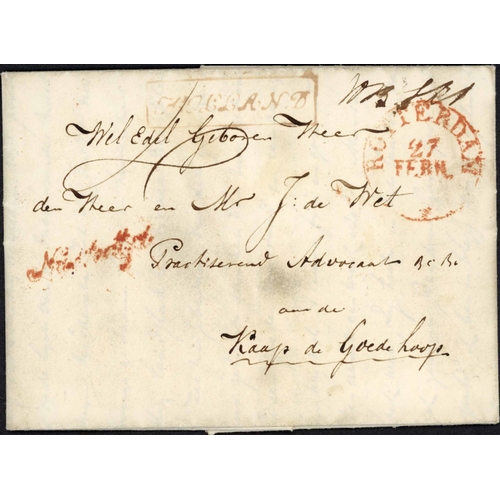 HOLLAND
ROTTERDAM
27
FEBR.
Wel Edel Geboren Heer
den Heer en Mr J: de Wet
Practiserend Advocaat &c &c
aan de
Kaap de Goedehoop